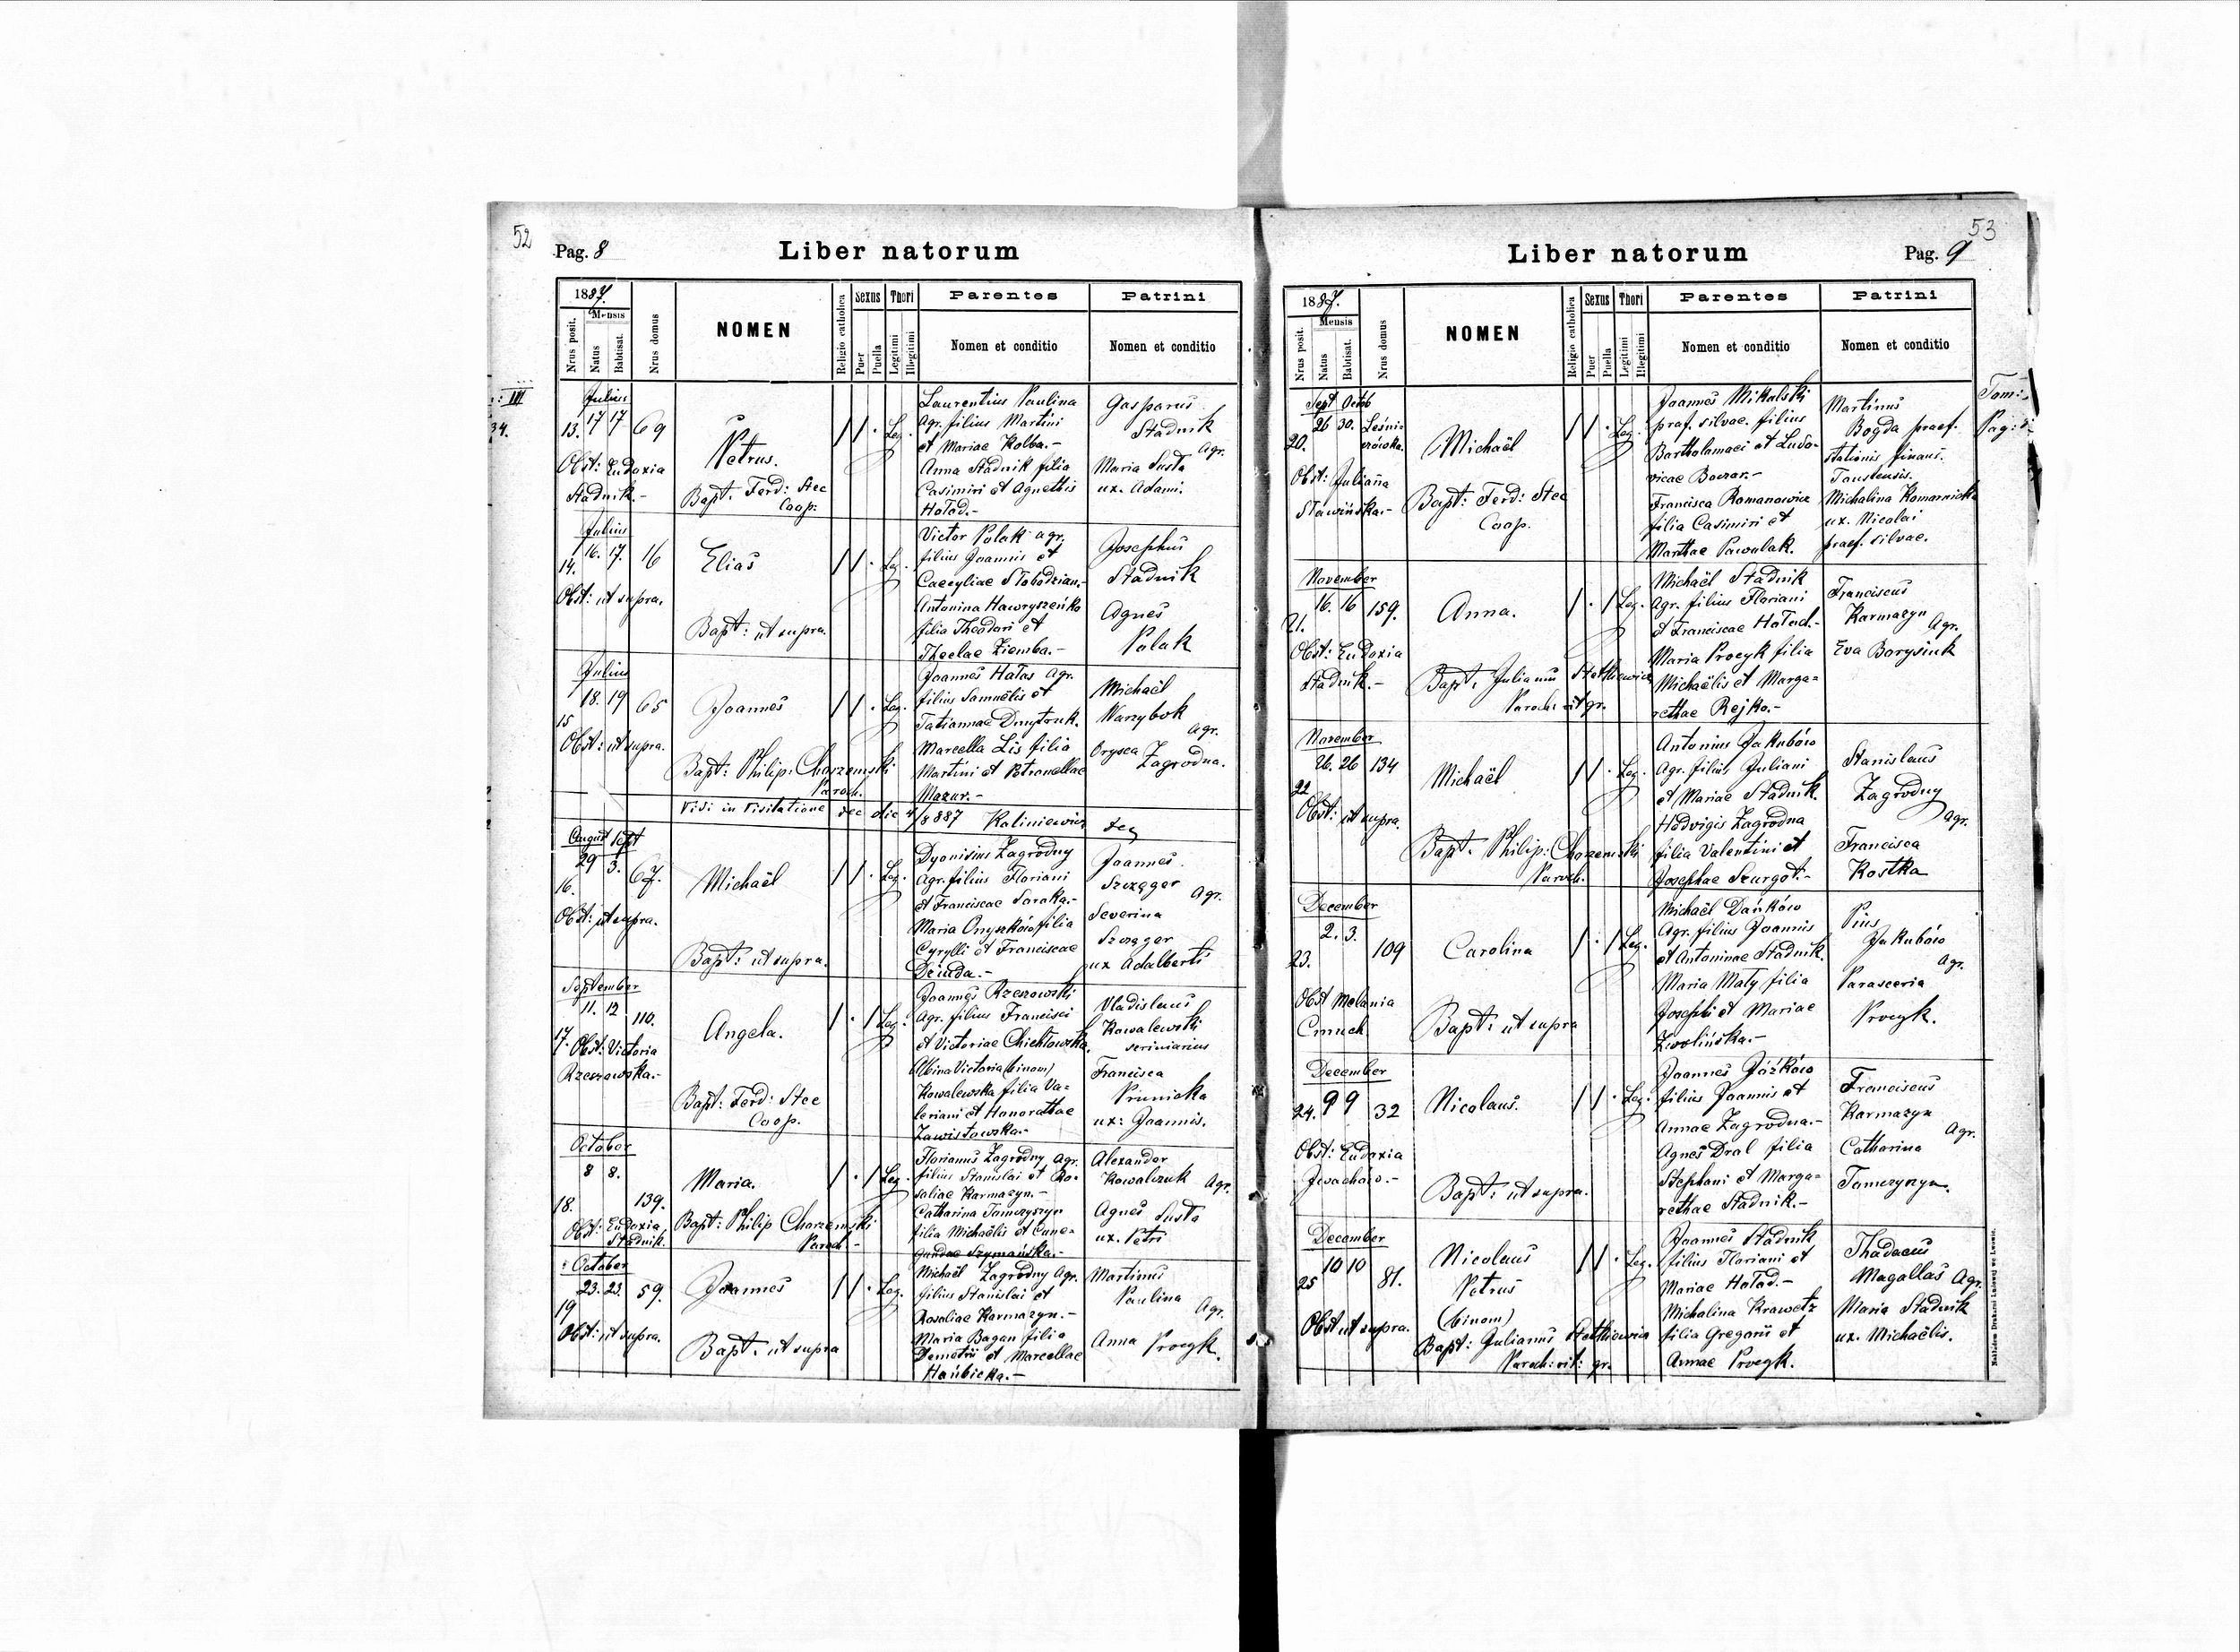 52
Pag. 8
Liber natorum
1887.
Mensis
Nrus posit.
Natus
Babtisat.
Nrus domus
NOMEN
Religio catholica
Sexus
Puer
Puella
Thori
Legitimi
Illegitimi
Parentes
Nomen et conditio
Patrini
Nomen et conditio
: III
34.
Julius
13. 17 17 69
Obst: Eudoxia
Stadnik.-
Petrus.
Bapt. Ferd: Stec
Coop:
Leg.
Laurentius Paulina
Agr. filius Martini
et Mariae Kolba.-
Anna Stadnik filia
Casimiri et Agnethis
Hołod.-
Gasparus
Stadnik
Agr.
Maria Susta
ux. Adami.
Julius
14. 16. 17. 16
Obst: ut supra.
Elias
Bapt: ut supra.
Leg.
Victor Polak agr.
filius Joannis et
Caecyliae Słobodzian.-
Antonina Hawryszeńko
filia Theodori et
Theclae Ziemba.-
Josephus
Stadnik
Agnes
Polak
Julius
15 18. 19 65
Obst: ut supra.
Joannes
Bapt: Philip: Chorzemski
Paroch.
Leg.
Joannes Hałas Agr.
filius Samuëlis et
Tatiannae Dmytruk.
Marcella Lis filia
Martini et Petronellae
Mazur.-
Michaël
Warzybok
Agr.
Orysea Zagrodna.
Visi in Visitatione dec die 4/8 887 Kaliniewicz
August Sept
16. 29 3. 67.
Obst: ut supra.
Michaël
Bapt: ut supra.
Leg.
Dyonisius Zagrodny
Agr. filius Floriani
et Franciscae Soroka.-
Maria Onyszków filia
Cyrylli et Franciscae
Dziuda.-
Joannes
Szczęger
Agr.
Severina
Szczęger
ux Adalberti
September
11. 12 110.
17. Obst: Victoria
Rzeszowska.-
Angela.
Bapt: Ferd: Stec
Coop.
Leg.
Joannes Rzeszowski
Agr. filius Francisci
et Victoriae Chichłowska.
Albina Victoria (binom)
Kowalewska filia Va-
leriani et Honorathae
Zawistowska.-
Vladislaus
Kowalewski
scriniarius
Francisca
Prunicka
ux: Joannis.
October
8 8.
18. 139.
Obst: Eudoxia
Stadnik.
Maria.
Bapt: Philip Chorzemski
Paroch.-
Leg.
Florianus Zagrodny Agr.
filius Stanislai et Ro-
saliae Karmazyn.-
Catharina Tomczyszyn
filia Michaëlis et Cune-
gundae Szymańska.-
Alexander
Kowalczuk Agr.
Agnes Susta
ux. Petri
October
23. 23. 59.
19
Obst: ut supra.
Joannes
Bapt. ut supra
Leg.
Michaël Zagrodny Agr.
filius Stanislai et
Rosaliae Karmazyn.-
Maria Bagan filia
Demetrii et Marcellae
Hańbicka.-
Martinus
Paulina
Agr.
Anna Procyk.
53
Liber natorum
Pag. 9
1887.
Mensis
Nrus posit.
Natus
Babtisat.
Nrus domus
NOMEN
Religio catholica
Sexus
Puer
Puella
Thori
Legitimi
Illegitimi
Parentes
Nomen et conditio
Patrini
Nomen et conditio
Tom:
Pag:
Sept Octob
26 30. Leśni-
20. czówska.
Obst: Julianna
Stawińska.-
Michaël
Bapt: Ferd: Stec
Coop.
Leg.
Joannes Mikalski
praf. silvae. filius
Bartholomaei et Ludo-
vicae Boczar.-
Francisca Romanowicz
filia Casimiri et
Marthae Pawulak.
Martinus
Bogda praef.
stationis finans.
Toustensis.
Michalina Komarnicka
ux. Nicolai
praef. silvae.
November
16. 16 159.
21.
Obst: Eudoxia
Stadnik.-
Anna.
Bapt. Julianus Stetkiewicz
Paroch: rit gr.
Leg.
Michaël Stadnik
Agr. filius Floriani
et Franciscae Hołod.-
Maria Procyk filia
Michaëlis et Marga-
rethae Rejko.-
Franciscus
Karmazyn Agr.
Eva Borysiuk
November
26. 26 134
22
Obst: ut supra.
Michaël
Bapt. Philip: Chorzemski
Paroch.
Leg.
Antonius Jakubów
Agr. filius Juliani
et Mariae Stadnik.
Hedvigis Zagrodna
filia Valentini et
Josephae Szurgot.-
Stanislaus
Zagrodny
Agr.
Francisca
Kostka
December
2. 3.
23. 109
Obst Melania
Cmuch
Carolina
Bapt: ut supra
Leg.
Michaël Dańków
Agr. filius Joannis
et Antoninae Stadnik.
Maria Mały filia
Josephi et Mariae
Zwolińska.-
Pius
Jakubów
Agr.
Parasceria
Procyk.
December
24. 9 9 32
Obst: Eudoxia
Nicolaus.
Bapt: ut supra.
Leg.
Joannes Józków
filius Joannis et
Annae Zagrodna.-
Agnes Dral filia
Stephani et Marga-
rethae Stadnik.-
Franciscus
Karmazyn
Agr.
Catharina
Tomczyszyn.
December
10 10
25 81.
Obst ut supra.
Nicolaus
Petrus
(binom)
Bapt: Julianus Stetkiewicz
Paroch: rit: gr.
Leg.
Joannes Stadnik
filius Floriani et
Mariae Hołod.-
Michalina Krawetz
filia Gregorii et
Annae Procyk.
Thadaeus
Magallas Agr.
Maria Stadnik
ux. Michaëlis.
Nakładem Drukarni Ludowej we Lwowie.